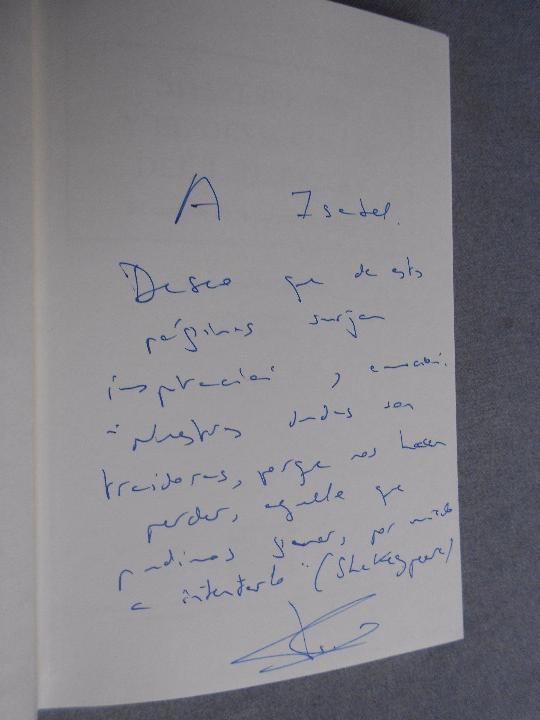 A Isabel.
Deseo que de estas
páginas surjan
inspiración y emoción.
"Nuestras dudas son
traidoras, porque nos hacen
perder, aquello que
pudimos ganar, por miedo
a intentarlo" (Shakespeare)